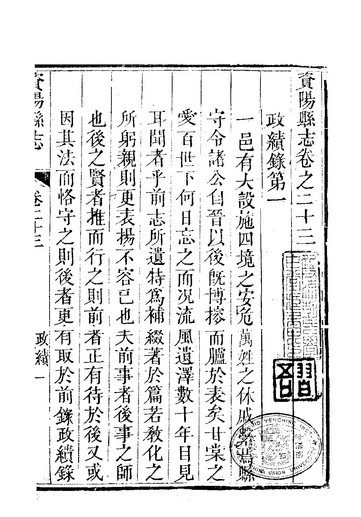 資陽縣志卷之二十三
政績錄第一
一邑有大設施四境之安危萬姓之休戚繫焉縣
守令諸公自晉以後旣博稽而臚於表矣甘棠之
愛百世下何日忘之而况流風遺澤數十年目見
耳聞者乎前志所遺特為補綴著於篇若敎化之
所躬親則更表揚不容已也夫前事者後事之師
也後之賢者推而行之則前者正有待於後又或
因其法而恪守之則後者更有取於前錄政績錄
資陽縣志
卷二十三
政績一